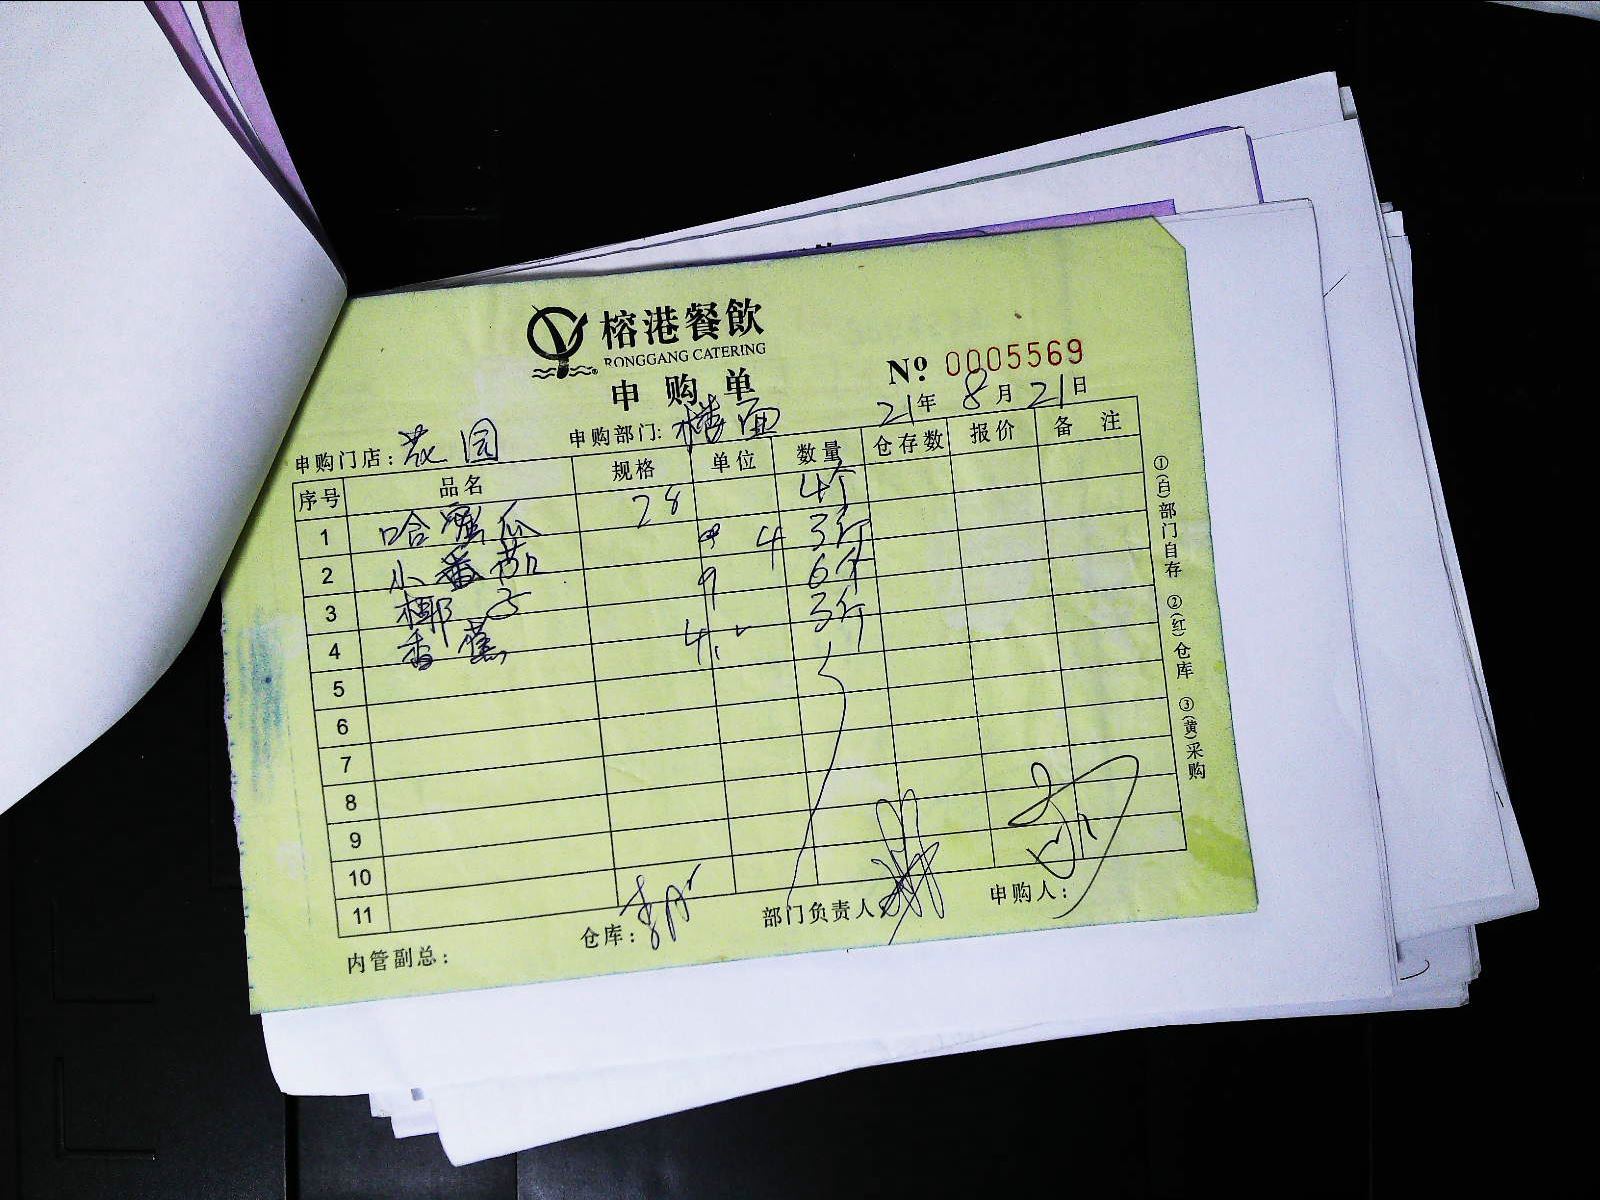 榕港餐飲
RONGGANG CATERING
申购单
№ 0005569
21年 8月 21日
申购门店: 花园 申购部门: 楼面
序号 品名 规格 单位 数量 仓存数 报价 备注
1 哈蜜瓜 28 4个
2 小番茄 4 3斤
3 椰子 9 6个
4 香蕉 4. 3斤
5
6
7
8
9
10
11
内管副总: 仓库: 部门负责人 申购人:
①(白)部门自存 ②(红)仓库 ③(黄)采购